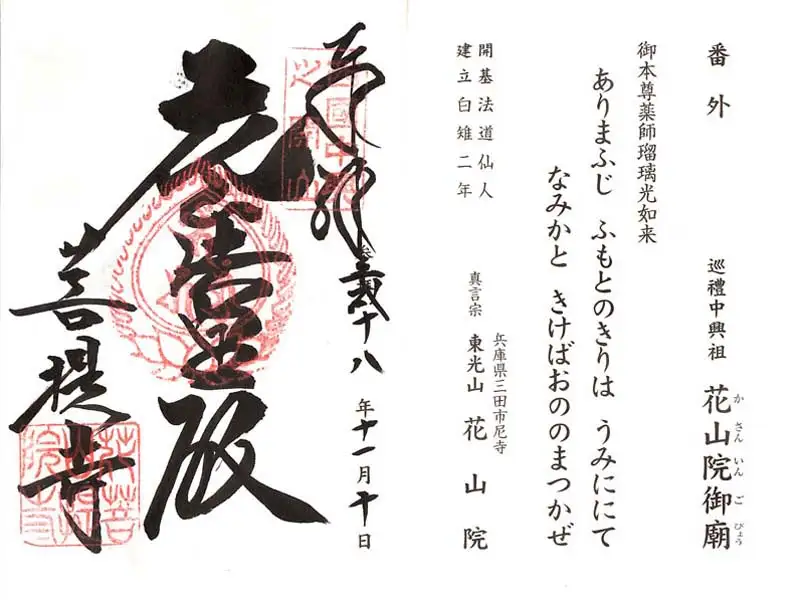 番外 巡禮中興祖 花山院御廟
かさんいんごびょう
御本尊薬師瑠璃光如来
ありまふじ ふもとのきりは うみににて
なみかと きけばおののまつかぜ
開基法道仙人
建立白雉二年
兵庫県三田市尼寺
真言宗 東光山 花山院
十八 年十一月十日
殿
菩提寺